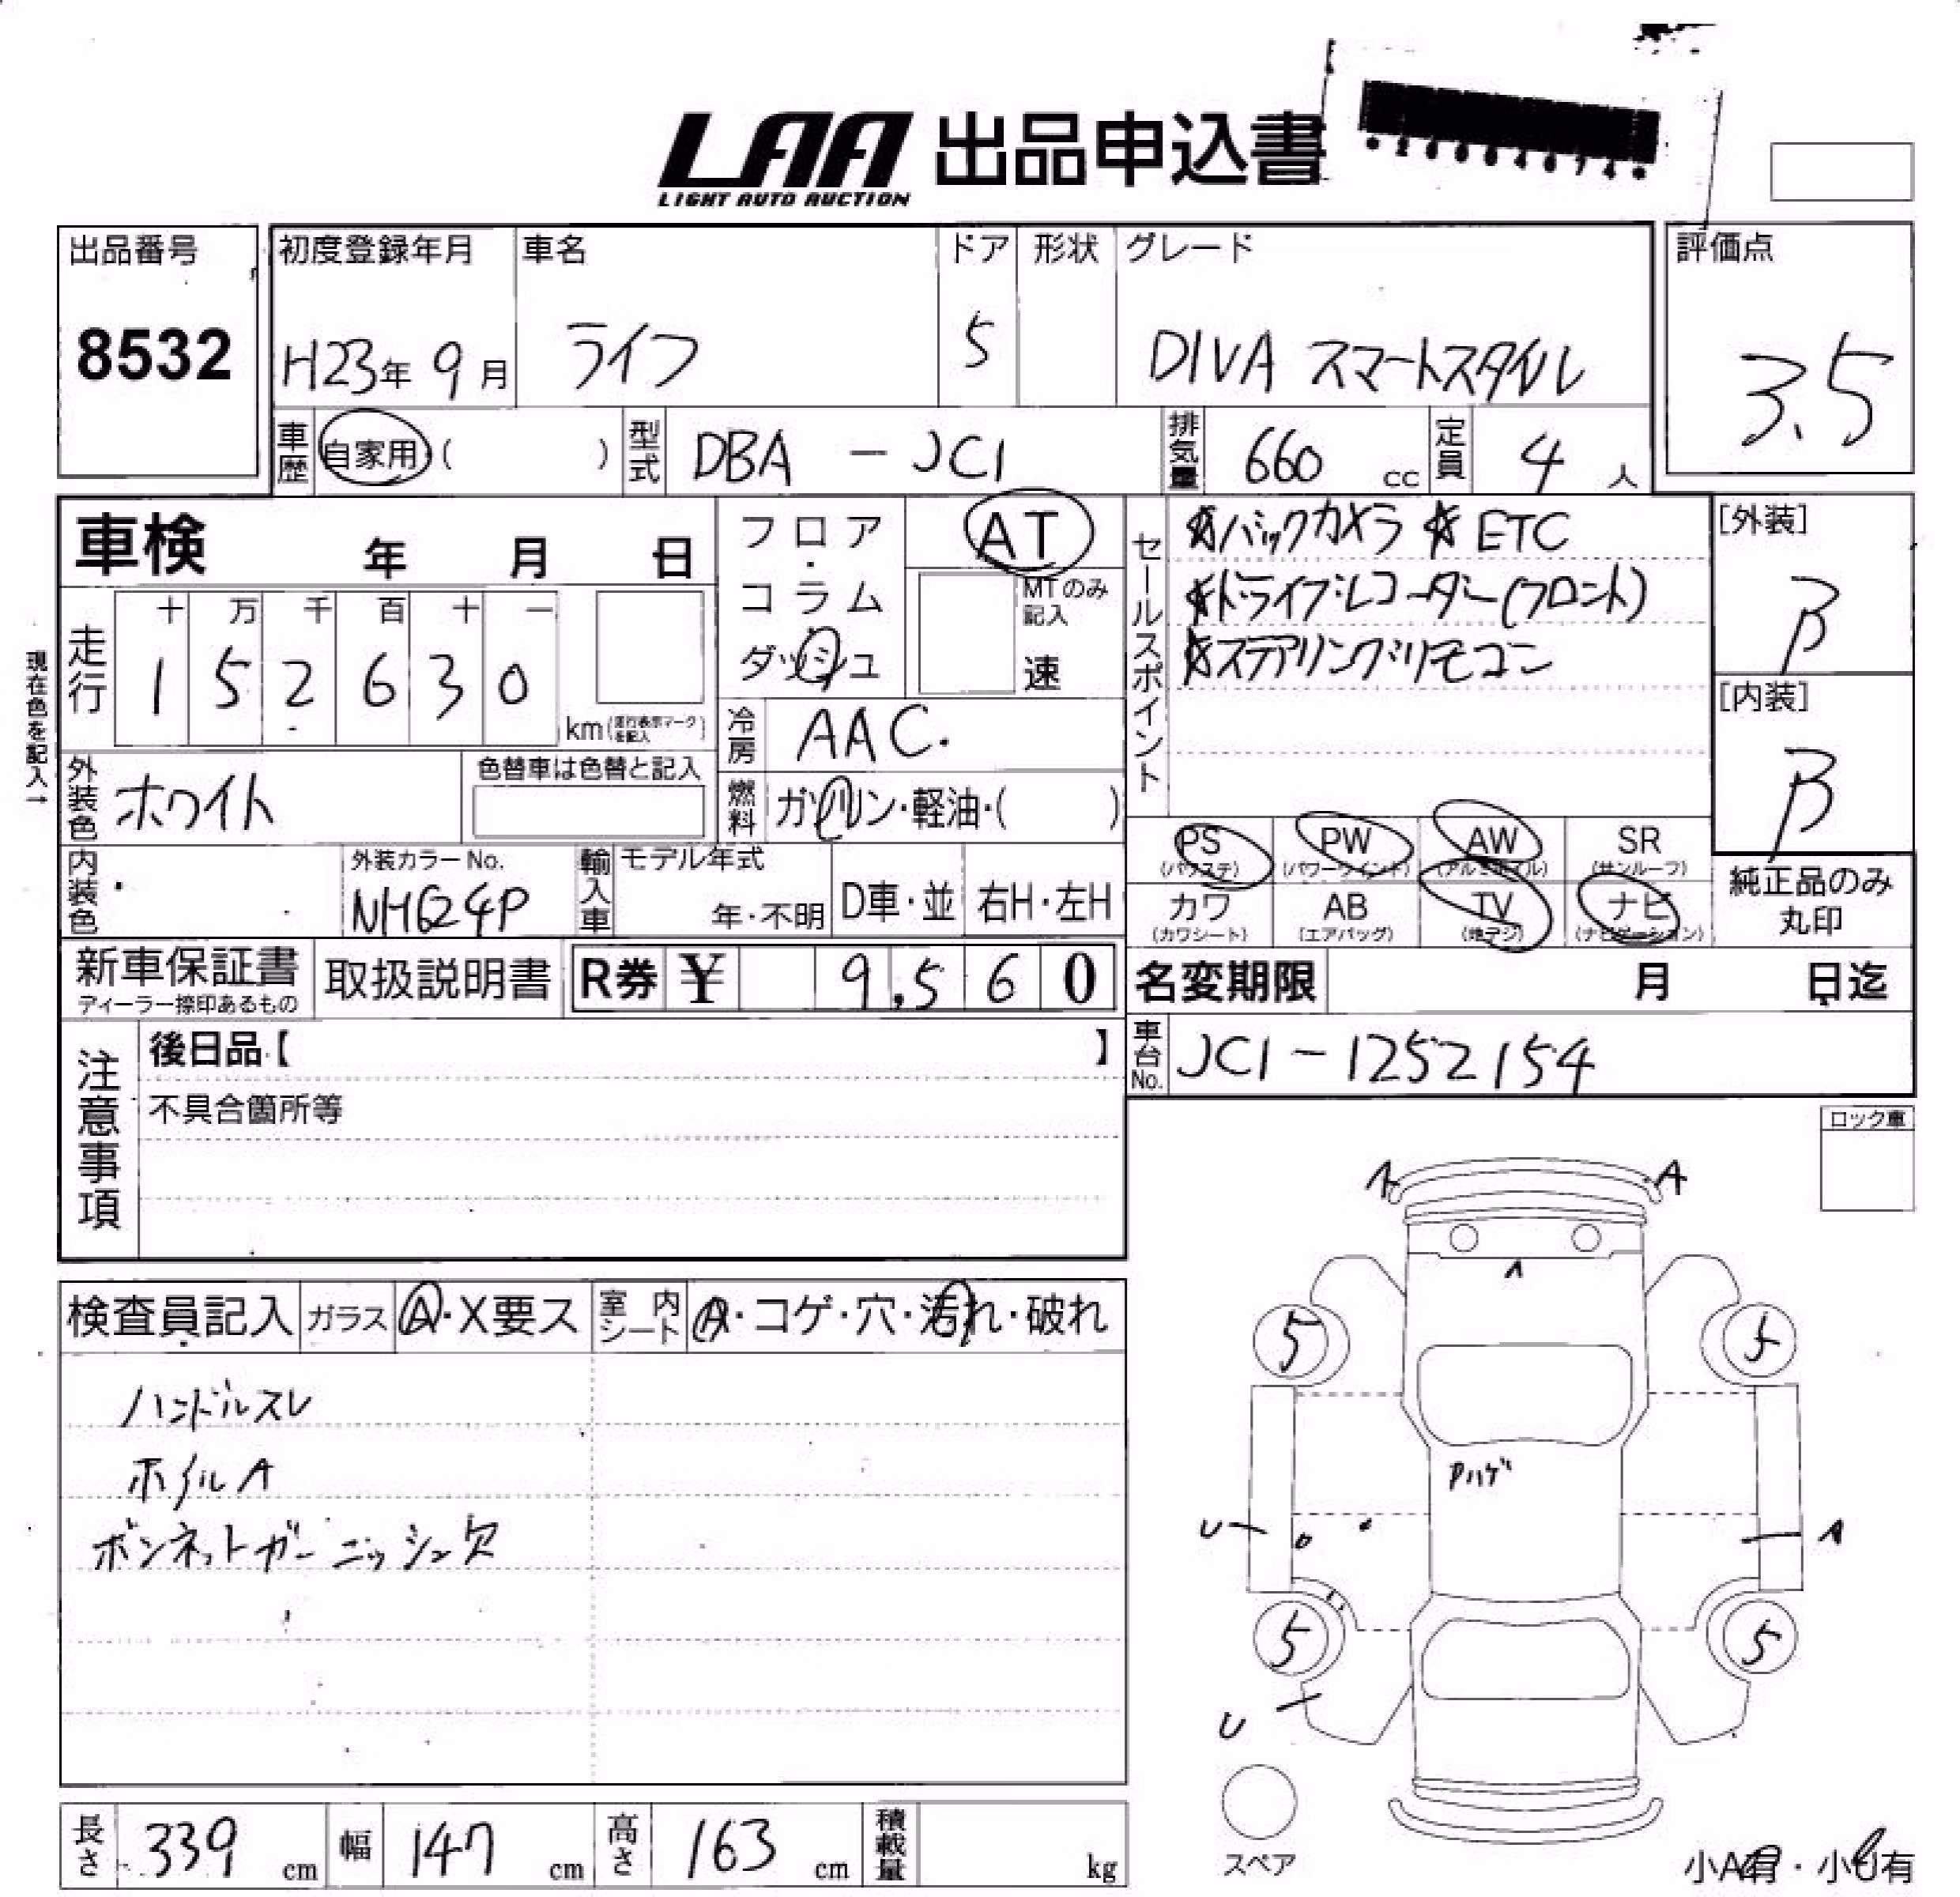 LAA 出品申込書
LIGHT AUTO AUCTION
出品番号
8532
初度登録年月
H23年 9月
車名
ライフ
ドア
5
形状
グレード
DIVA スマートスタイル
評価点
3.5
車歴 自家用・( )
型式 DBA - JC1
排気量 660 cc
定員 4 人
車検 年 月 日
フロア・コラム・ダッシュ
AT
MTのみ記入
速
セールスポイント
☆バックカメラ ☆ ETC
☆ドライブレコーダー(フロント)
☆ステアリングリモコン
[外装]
B
[内装]
B
現在色を記入→
走行
十 万 千 百 十 一
1 5 2 6 3 0
km(走行表示マークを記入)
冷房 AAC.
燃料 ガソリン・軽油・( )
外装色 ホワイト
色替車は色替と記入
内装色
外装カラーNo.
NH624P
輸入車 モデル年式
年・不明
D車・並
右H・左H
PS (パワステ)
PW (パワーウィンド)
AW (アルミホイル)
SR (サンルーフ)
カワ (カワシート)
AB (エアバッグ)
TV (地デジ)
ナビ (ナビゲーション)
純正品のみ
丸印
新車保証書
ディーラー捺印あるもの
取扱説明書
R券 ¥ 9,560
名変期限 月 日迄
注意事項
後日品【 】
不具合箇所等
車台No. JC1-1252154
ロック車
検査員記入
ガラス A・X要ス
室内シート A・コゲ・穴・汚れ・破れ
ハンドルスレ
ホイルA
ボンネットガーニッシュ欠
A A
A
5 5
Pハゲ
U A
5 5
U
スペア
長さ 339 cm
幅 147 cm
高さ 163 cm
積載量 kg
小A有・小U有